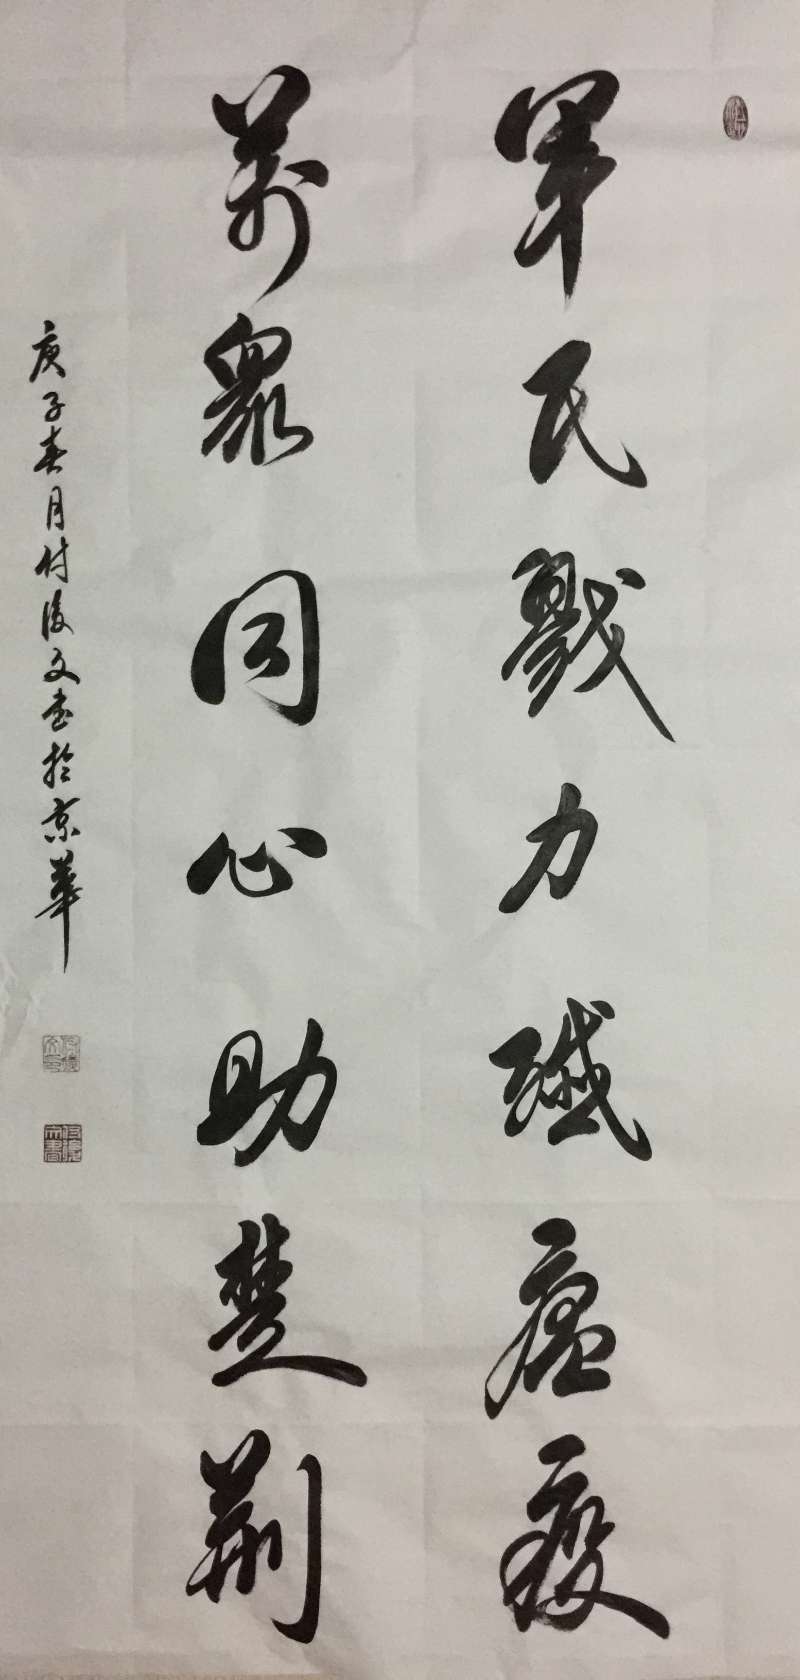 軍民戮力殲瘟疫
萬眾同心助楚荆
庚子春月付後文書於京華